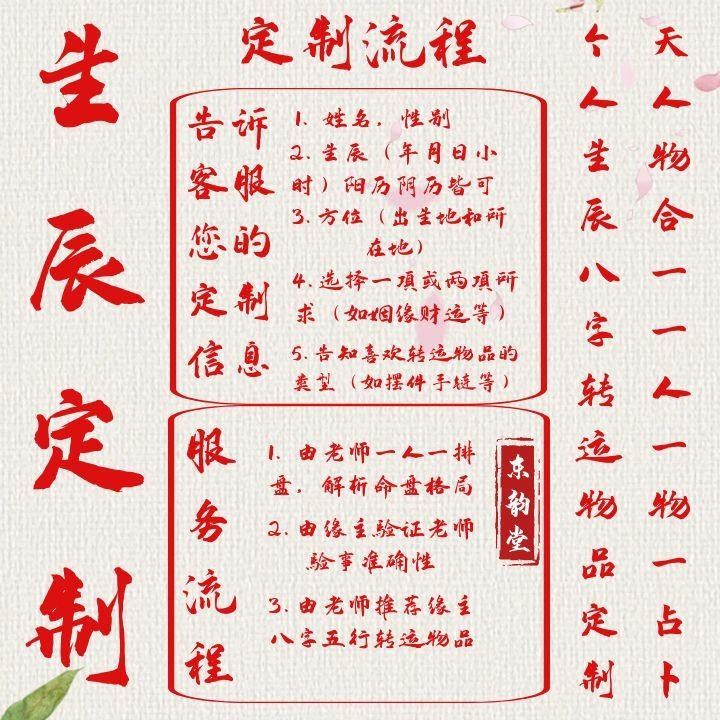 生辰定制
定制流程
告诉
客服
您的
定制
信息
1. 姓名，性别
2. 生辰（年月日小
时）阳历阴历皆可
3. 方位（出生地和所
在地）
4. 选择一項或两項所
求（如姻缘财运等）
5. 告知喜欢转运物品的
类型（如摆件手链等）
服务流程
1. 由老师一人一排
盘，解析命盘格局
2. 由缘主験证老师
験事准确性
3. 由老师推荐缘主
八字五行转运物品
东韵堂
天人物合一一人一物一占卜
个人生辰八字转运物品定制